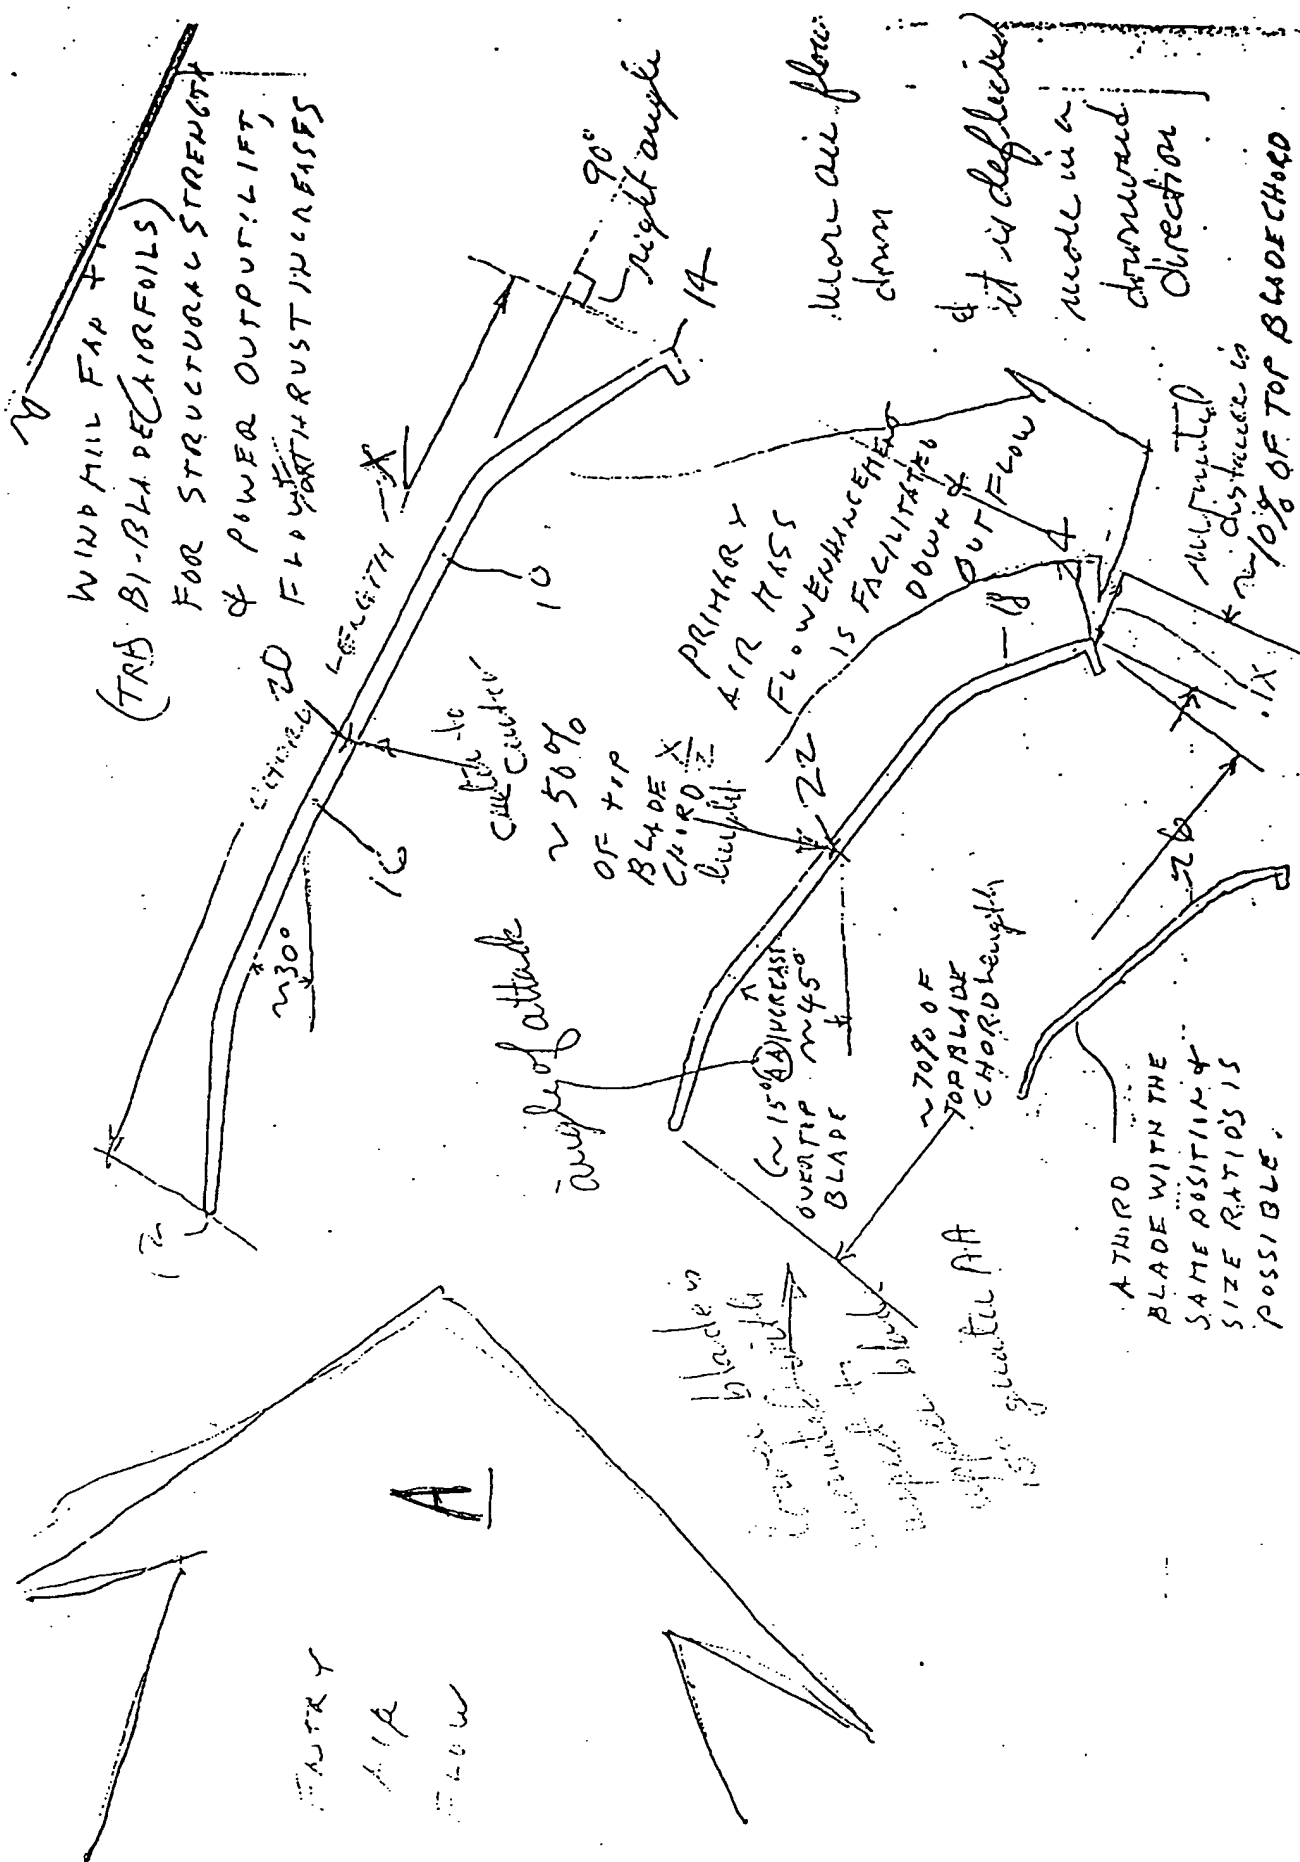 WIND MILL FAN +
(TRAS BI-BLADE (AIRFOILS)
FOR STRUCTURAL STRENGTH
& POWER OUTPUT: LIFT,
FLOW THRUST INCREASES
CHORD LENGTH X
20
90°
right angle
14
10
16
12
~30°
center to
center
~50%
OF TOP
BLADE X/2
CHORD
length
22
PRIMARY
AIR MASS
FLOW ENHANCEMENT
IS FACILITATED
DOWN &
OUT FLOW
More air flow
down
&
it is deflected
more in a
downward
direction
18
distance is
~10% OF TOP BLADE CHORD
.1X
angle of attack
(~15° AA INCREASE
OVER TOP ~45°
BLADE
~70% OF
TOP BLADE
CHORD length
26
A THIRD
BLADE WITH THE
SAME POSITION &
SIZE RATIOS IS
POSSIBLE.
blades
upper blade
is greater AA
A
ENTRY
AIR
FLOW